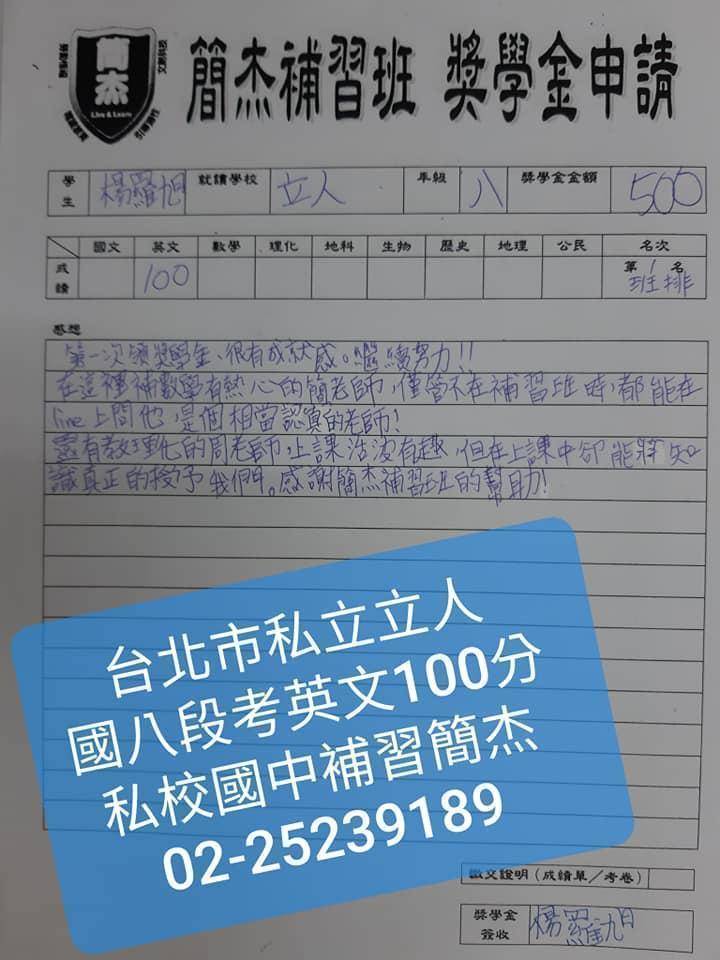 簡杰
Live & Learn
簡杰補習班 獎學金申請
學生 楊羅旭 就讀學校 立人 年級 八 獎學金金額 500
國文 英文 數學 理化 地科 生物 歷史 地理 公民 名次
成績 100 第1名 班排
感想
第一次領獎學金、很有成就感。繼續努力!!
在這裡補數學有熱心的簡老師,僅管不在補習班時,都能在
line上問他,是個相當認真的老師!
還有教理化的周老師,上課活潑有趣,但在上課中卻能將知
識真正的授予我們。感謝簡杰補習班的幫助!
台北市私立立人
國八段考英文100分
私校國中補習簡杰
02-25239189
繳交證明(成績單/考卷)
獎學金簽收 楊羅旭